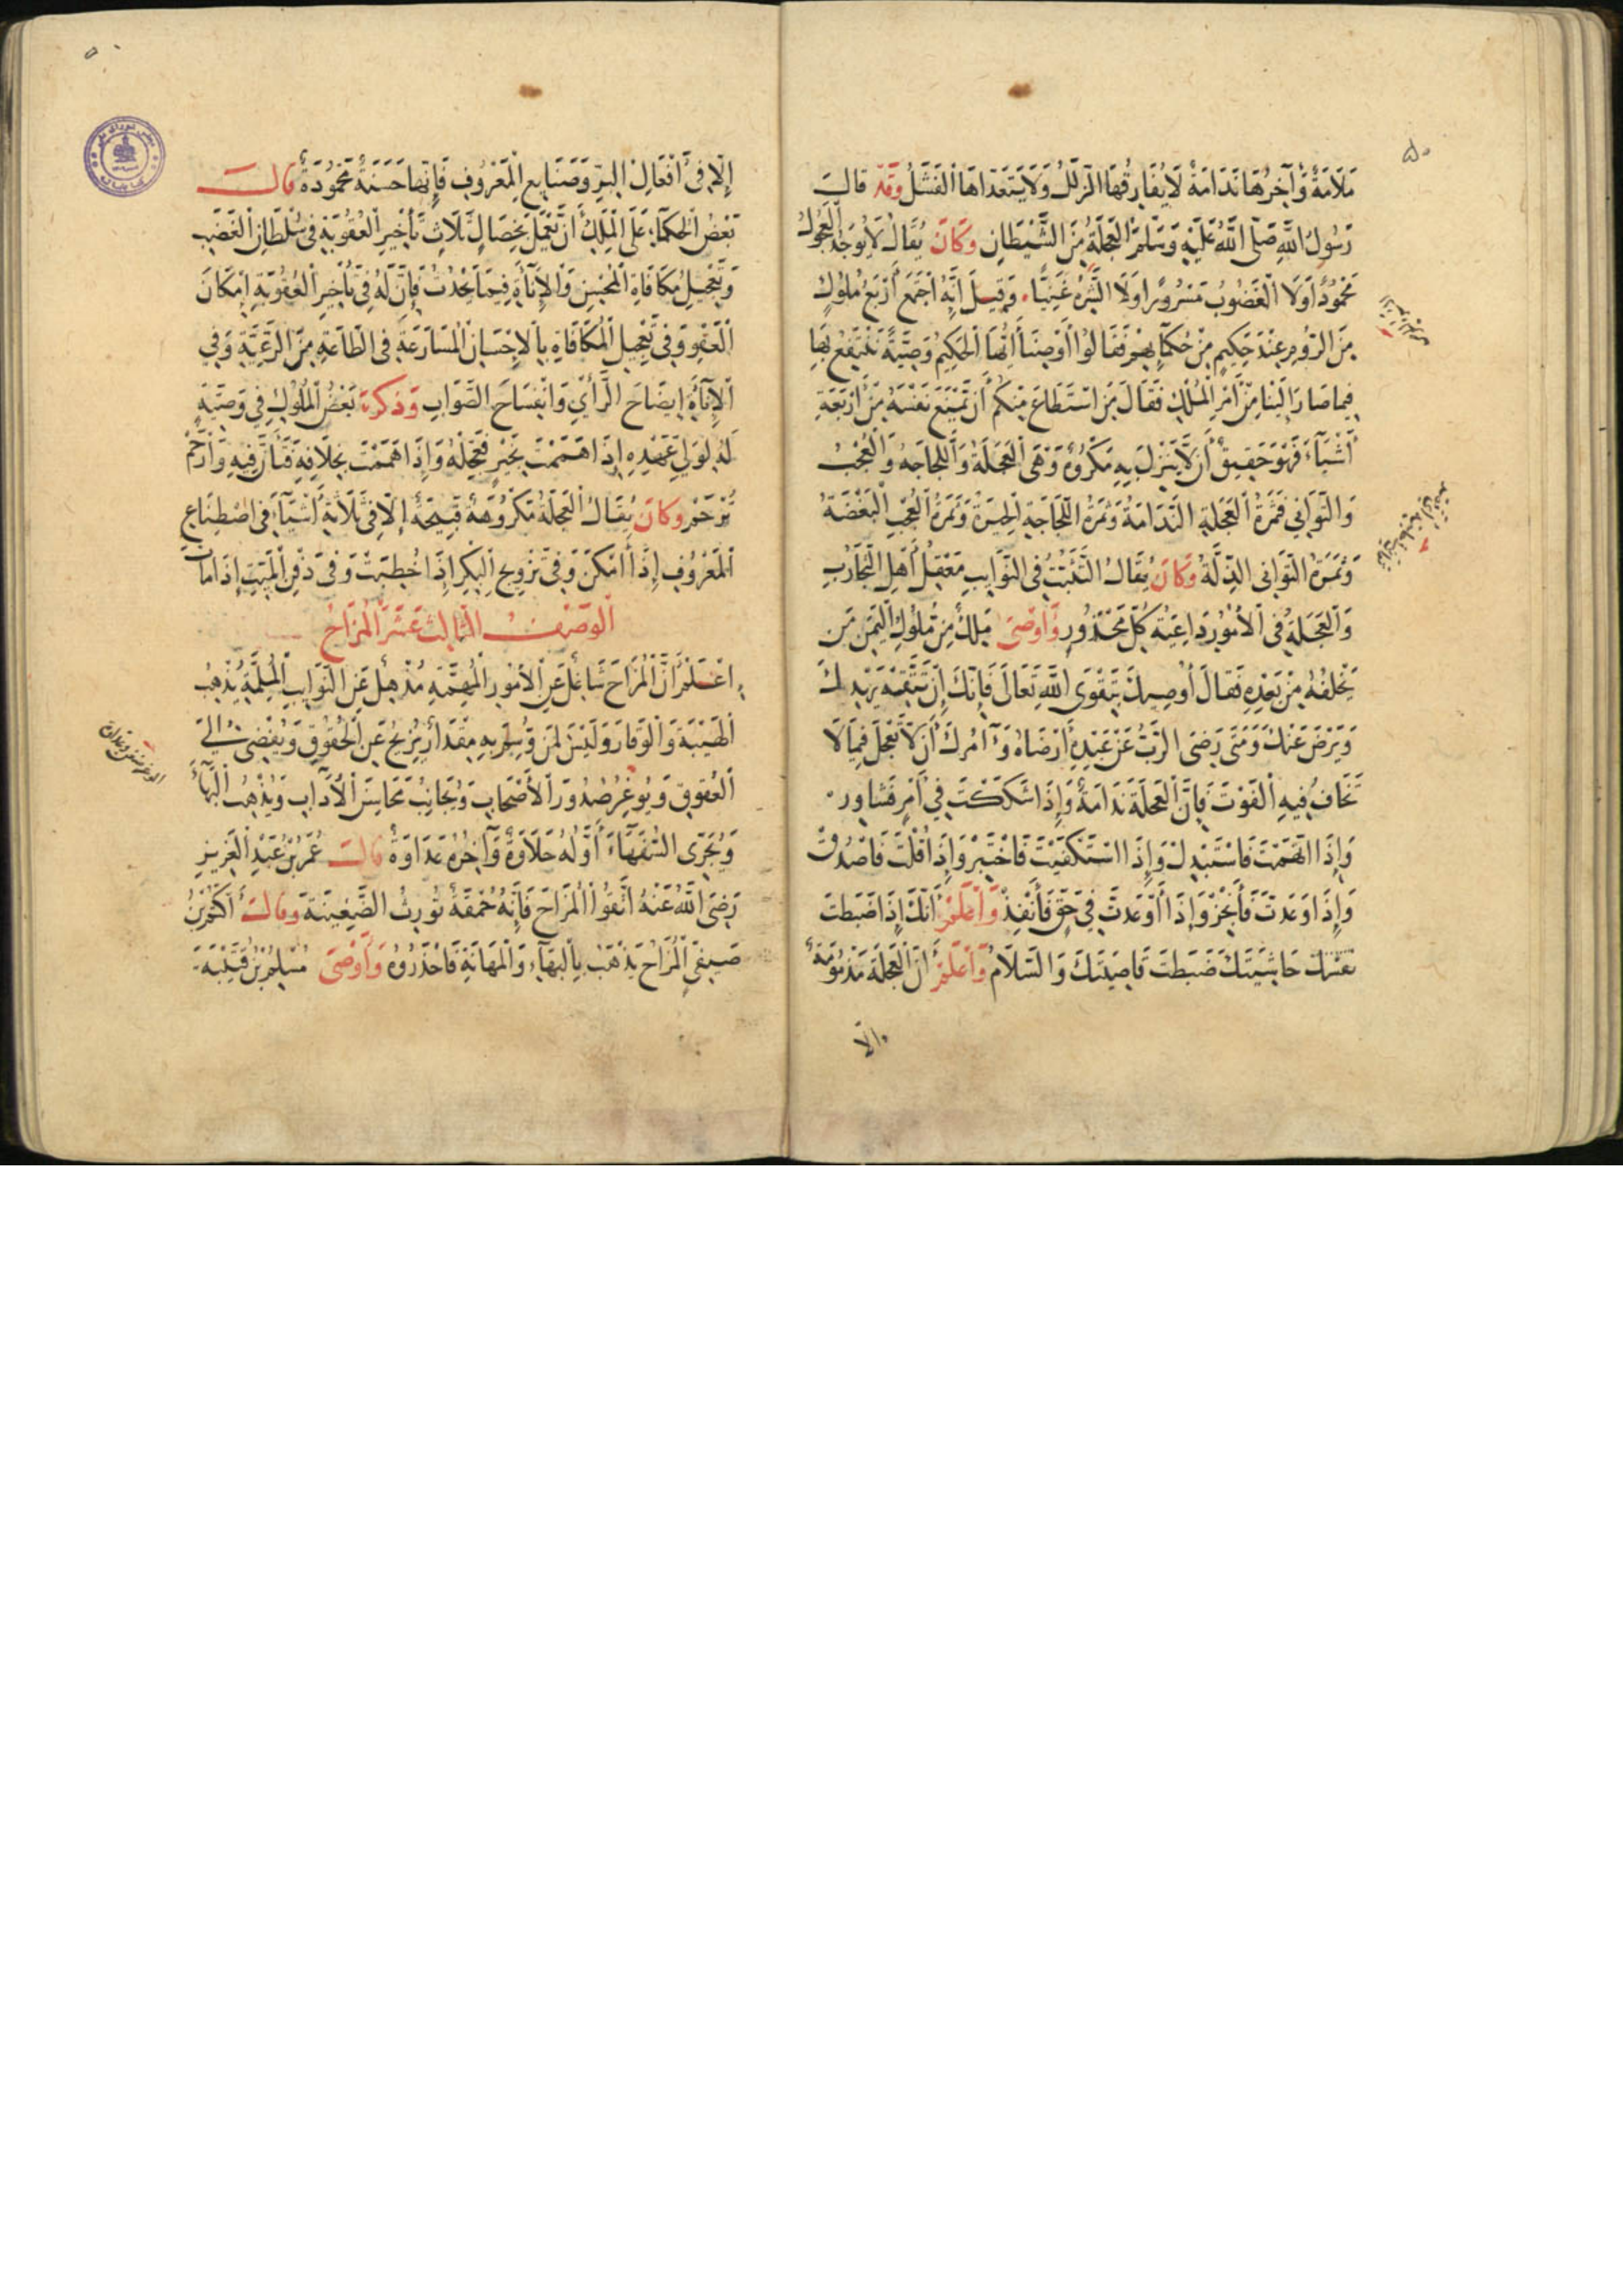 مَلَامَةٌ وَآخِرُهَا نَدَامَةٌ لَا يُفَارِقُهَا الزَّلَلُ وَلَا يَتَعَدَاهَا الْفَشَلُ وَقَدْ قَالَ
رَسُولُ اللَّهِ صَلَّى اللَّهُ عَلَيْهِ وَسَلَّمَ الْعَجَلَةُ مِنَ الشَّيْطَانِ وَكَانَ يُقَالُ لَا يُوجَدُ الْعَجُولُ
مَحْمُودًا وَلَا الْغَضُوبُ مَسْرُورًا وَلَا الشَّرِهُ غَنِيًّا، وَقِيلَ إِنَّهُ اجْتَمَعَ أَرْبَعُ مُلُوكٍ
مِنَ الرُّومِ عِنْدَ حَكِيمٍ مِنْ حُكَمَائِهِمْ فَقَالُوا أَوْصِنَا أَيُّهَا الْحَكِيمُ وَصِيَّةً نَنْتَفِعُ بِهَا
فِيمَا صَارَ إِلَيْنَا مِنْ أَمْرِ الْمُلْكِ فَقَالَ مَنِ اسْتَطَاعَ مِنْكُمْ أَنْ يَمْنَعَ نَفْسَهُ مِنْ أَرْبَعَةِ
أَشْيَآءَ فَهُوَ حَقِيقٌ أَنْ لَا يَنْزِلَ بِهِ مَكْرُوهٌ وَهِيَ الْعَجَلَةُ وَاللَّجَاجَةُ وَالْعُجْبُ
وَالتَّوَانِي فَثَمَرَةُ الْعَجَلَةِ النَّدَامَةُ وَثَمَرَةُ اللَّجَاجَةِ الْحَيْرَةُ وَثَمَرَةُ الْعُجْبِ الْبَغْضَةُ
وَثَمَرَةُ التَّوَانِي الذِّلَّةُ وَكَانَ يُقَالُ التَّثَبُّتُ فِي النَّوَايِبِ مَعْقِلُ أَهْلِ التَّجَارُبِ
وَالْعَجَلَةُ فِي الْأُمُورِ دَاعِيَةُ كُلِّ مَحْذُورٍ وَأَوْصَى مَلِكٌ مِنْ مُلُوكِ الْيَمَنِ مَنْ
يَخْلُفُهُ مِنْ بَعْدِهِ فَقَالَ أُوصِيكَ بِتَقْوَى اللَّهِ تَعَالَى فَإِنَّكَ إِنْ تَتَّقِهْ يَهْدِكَ
وَيَرْضَ عَنْكَ وَمَتَى رَضِيَ الرَّبُّ عَنْ عَبْدِهِ أَرْضَاهُ وَآمُرُكَ أَنْ لَا تَعْجَلَ فِيمَا لَا
تَخَافُ فِيهِ الْفَوْتَ فَإِنَّ الْعَجَلَةَ نَدَامَةٌ وَإِذَا شَكَكْتَ فِي أَمْرٍ فَشَاوِرْ
وَإِذَا اتَّهَمْتَ فَاسْتَبْدِلْ وَإِذَا اسْتَكْفَيْتَ فَاخْتَبِرْ وَإِذَا قُلْتَ فَاصْدُقْ
وَإِذَا وَعَدْتَ فَأَنْجِزْ وَإِذَا أَوْعَدْتَ فِي حَقٍّ فَأَنْفِذْ وَاعْلَمْ أَنَّكَ إِذَا ضَبَطْتَ
نَفْسَكَ حَاشِيَتَكَ ضَبَطْتَ قَاصِيَتَكَ وَالسَّلَامُ وَاعْلَمْ أَنَّ الْعَجَلَةَ مَذْمُومَةٌ
إلا
إِلَّا فِي أَفْعَالِ الْبِرِّ وَصَنَايِعِ الْمَعْرُوفِ فَإِنَّهَا حَسَنَةٌ مَحْمُودَةٌ قَالَ
بَعْضُ الْحُكَمَآءِ عَلَى الْمَلِكِ أَنْ يَعْمَلَ بِخِصَالٍ ثَلَاثٍ تَأْخِيرِ الْعُقُوبَةِ فِي سُلْطَانِ الْغَضَبِ
وَتَعْجِيلِ مُكَافَاةِ الْمُحْسِنِ وَالْإِنَاءَةِ فِيمَا يَحْدُثُ فَإِنَّ لَهُ فِي تَأْخِيرِ الْعُقُوبَةِ إِمْكَانَ
الْعَفْوِ وَفِي تَعْجِيلِ الْمُكَافَاةِ بِالْإِحْسَانِ الْمُسَارَعَةِ فِي الطَّاعَةِ مِنَ الرَّعِيَّةِ وَفِي
الْإِنَاءَةِ إِيضَاحَ الرَّأْيِ وَانْفِسَاحَ الصَّوَابِ وَذَكَرَ بَعْضُ الْمُلُوكِ فِي وَصِيَّةٍ
لَهُ لِوَلِيِّ عَهْدِهِ إِذَا هَمَمْتَ بِخَيْرٍ فَعَجِّلْهُ وَإِذَا هَمَمْتَ بِخِلَافِهِ فَتَأَنَّ فِيهِ وَارْحَمْ
تُرْحَمْ وَكَانَ يُقَالُ الْعَجَلَةُ مَكْرُوهَةٌ قَبِيحَةٌ إِلَّا فِي ثَلَاثَةِ أَشْيَآءَ فِي اصْطِنَاعِ
الْمَعْرُوفِ إِذَا أَمْكَنَ وَفِي تَزْوِيجِ الْبِكْرِ إِذَا خُطِبَتْ وَفِي دَفْنِ الْمَيِّتِ إِذَا مَاتَ
الْوَصْفُ الثَّالِثَ عَشَرَ الْمُزَاحُ
اعْلَمْ أَنَّ الْمُزَاحَ شَاغِلٌ عَنِ الْأُمُورِ الْمُهِمَّةِ مُذْهِلٌ عَنِ النَّوَايِبِ الْمُلِمَّةِ يُذْهِبُ
الْهَيْبَةَ وَالْوَقَارَ وَلَيْسَ لِمَنْ وُسِمَ بِهِ مِقْدَارٌ يُزِيحُ عَنِ الْحُقُوقِ وَيُفْضِي إِلَى
الْعُقُوقِ وَيُوغِرُ صُدُورَ الْأَصْحَابِ وَيُجَانِبُ مَحَاسِنَ الْآدَابِ وَيُذْهِبُ الْبَهَآءَ
وَيُجَرِّي السُّفَهَآءَ أَوَّلُهُ حَلَاوَةٌ وَآخِرُهُ عَدَاوَةٌ قَالَ عُمَرُ بْنُ عَبْدِ الْعَزِيزِ
رَضِيَ اللَّهُ عَنْهُ اتَّقُوا الْمُزَاحَ فَإِنَّهُ حُمْقَةٌ تُورِثُ الضَّغِينَةَ وَقَالَ أَكْثَمُ بْنُ
صَيْفِيٍّ الْمُزَاحُ يَذْهَبُ بِالْبَهَآءِ وَالْمَهَانَةِ فَاحْذَرُوهُ وَأَوْصَى مُسْلِمُ بْنُ قُتَيْبَةَ